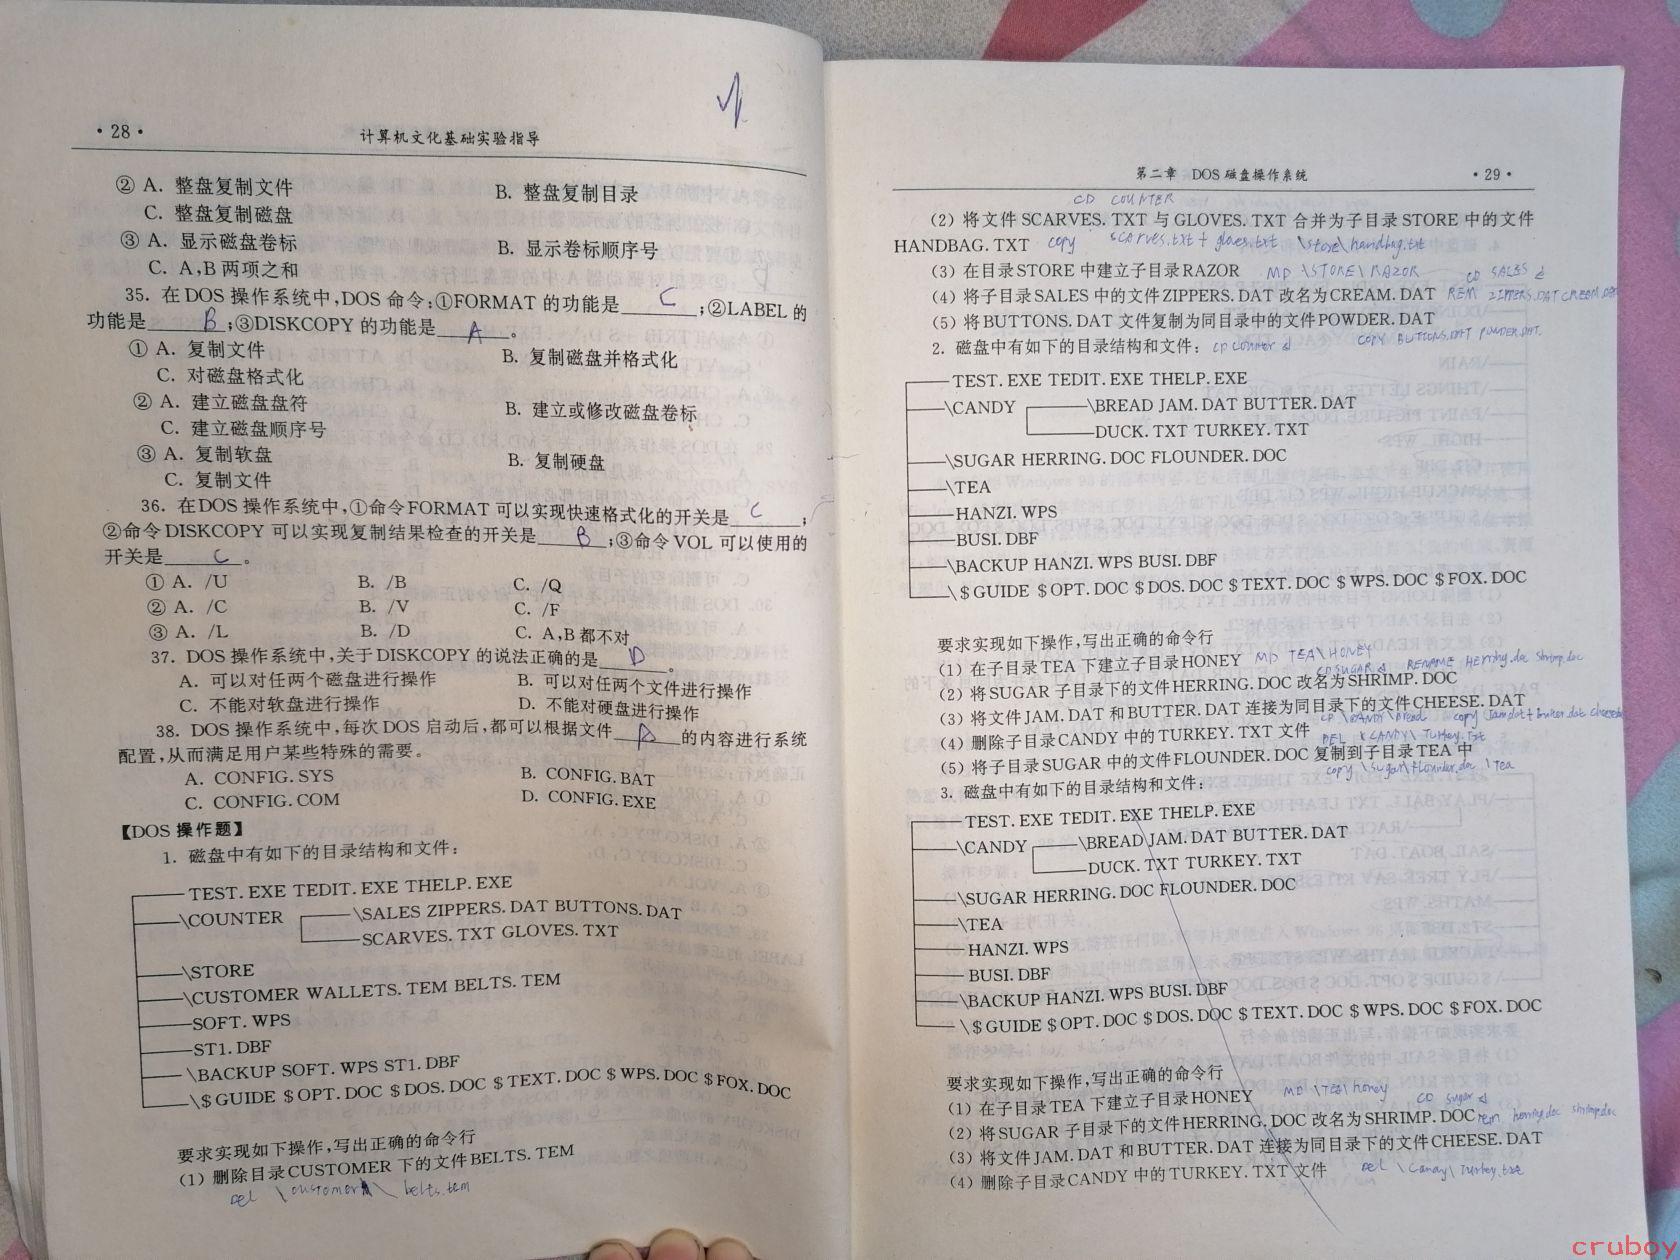 ·28·
计算机文化基础实验指导
② A. 整盘复制文件 B. 整盘复制目录
C. 整盘复制磁盘
③ A. 显示磁盘卷标 B. 显示卷标顺序号
C. A,B 两项之和
35. 在DOS 操作系统中,DOS 命令:①FORMAT 的功能是 C ;②LABEL 的
功能是 B ;③DISKCOPY 的功能是 A 。
① A. 复制文件 B. 复制磁盘并格式化
C. 对磁盘格式化
② A. 建立磁盘盘符 B. 建立或修改磁盘卷标
C. 建立磁盘顺序号
③ A. 复制软盘 B. 复制硬盘
C. 复制文件
36. 在DOS 操作系统中,①命令FORMAT 可以实现快速格式化的开关是 C ;
②命令 DISKCOPY 可以实现复制结果检查的开关是 B ;③命令 VOL 可以使用的
开关是 C 。
① A. /U B. /B C. /Q
② A. /C B. /V C. /F
③ A. /L B. /D C. A,B 都不对
37. DOS 操作系统中,关于 DISKCOPY 的说法正确的是 D 。
A. 可以对任两个磁盘进行操作 B. 可以对任两个文件进行操作
C. 不能对软盘进行操作 D. 不能对硬盘进行操作
38. DOS 操作系统中,每次 DOS 启动后,都可以根据文件 A 的内容进行系统
配置,从而满足用户某些特殊的需要。
A. CONFIG. SYS B. CONFIG. BAT
C. CONFIG. COM D. CONFIG. EXE
【DOS 操作题】
1. 磁盘中有如下的目录结构和文件:
TEST. EXE TEDIT. EXE THELP. EXE
\COUNTER \SALES ZIPPERS. DAT BUTTONS. DAT
SCARVES. TXT GLOVES. TXT
\STORE
\CUSTOMER WALLETS. TEM BELTS. TEM
SOFT. WPS
ST1. DBF
\BACKUP SOFT. WPS ST1. DBF
\$ GUIDE $ OPT. DOC $ DOS. DOC $ TEXT. DOC $ WPS. DOC $ FOX. DOC
要求实现如下操作,写出正确的命令行
(1) 删除目录 CUSTOMER 下的文件 BELTS. TEM
Del \customer \ belts.tem
第二章 DOS 磁盘操作系统
·29·
CD COUNTER
(2) 将文件 SCARVES. TXT 与 GLOVES. TXT 合并为子目录 STORE 中的文件
HANDBAG. TXT copy scarves.txt + gloves.txt \store\handbag.txt
(3) 在目录 STORE 中建立子目录 RAZOR MD \STORE\RAZOR CD SALES
(4) 将子目录 SALES 中的文件 ZIPPERS. DAT 改名为 CREAM. DAT REM ZIPPERS.DAT CREAM.DAT
(5) 将 BUTTONS. DAT 文件复制为同目录中的文件 POWDER. DAT
2. 磁盘中有如下的目录结构和文件: COPY BUTTONS.DAT POWDER.DAT.
TEST. EXE TEDIT. EXE THELP. EXE
\CANDY \BREAD JAM. DAT BUTTER. DAT
DUCK. TXT TURKEY. TXT
\SUGAR HERRING. DOC FLOUNDER. DOC
\TEA
HANZI. WPS
BUSI. DBF
\BACKUP HANZI. WPS BUSI. DBF
\$ GUIDE $ OPT. DOC $ DOS. DOC $ TEXT. DOC $ WPS. DOC $ FOX. DOC
要求实现如下操作,写出正确的命令行
(1) 在子目录 TEA 下建立子目录 HONEY MD TEA\HONEY
CD SUGAR RENAME Herring.doc shrimp.doc
(2) 将 SUGAR 子目录下的文件 HERRING. DOC 改名为 SHRIMP. DOC
(3) 将文件 JAM. DAT 和 BUTTER. DAT 连接为同目录下的文件 CHEESE. DAT
(4) 删除子目录 CANDY 中的 TURKEY. TXT 文件 DEL \CANDY\ Turkey.txt
(5) 将子目录 SUGAR 中的文件 FLOUNDER. DOC 复制到子目录 TEA 中
copy \sugar\flounder.doc \Tea
3. 磁盘中有如下的目录结构和文件:
TEST. EXE TEDIT. EXE THELP. EXE
\CANDY \BREAD JAM. DAT BUTTER. DAT
DUCK. TXT TURKEY. TXT
\SUGAR HERRING. DOC FLOUNDER. DOC
\TEA
HANZI. WPS
BUSI. DBF
\BACKUP HANZI. WPS BUSI. DBF
\$ GUIDE $ OPT. DOC $ DOS. DOC $ TEXT. DOC $ WPS. DOC $ FOX. DOC
要求实现如下操作,写出正确的命令行
(1) 在子目录 TEA 下建立子目录 HONEY MD \TEA\ honey
CD sugar
(2) 将 SUGAR 子目录下的文件 HERRING. DOC 改名为 SHRIMP. DOC rem herring.doc shrimp.doc
(3) 将文件 JAM. DAT 和 BUTTER. DAT 连接为同目录下的文件 CHEESE. DAT
(4) 删除子目录 CANDY 中的 TURKEY. TXT 文件 Del \Candy\ Turkey.txt
cruboy